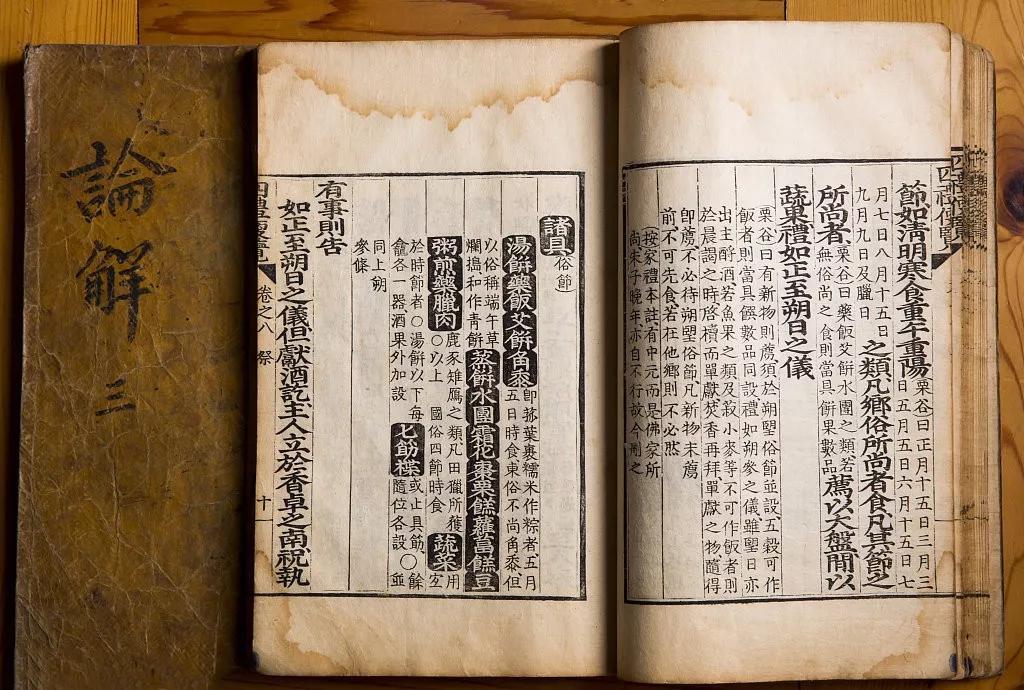 四禮便覽
節如清明寒食重午重陽栗谷曰正月十五日三月三
日五月五日六月十五日七
月七日八月十五日
九月九日及臘日之類凡鄉俗所尚者食凡其節之
所尚者栗谷曰藥飯艾餠水團之類若
無俗尚之食則當具餠果數品薦以大盤間以
蔬果禮如正至朔日之儀
栗谷曰有新物則薦須於朔望俗節並設五穀可作
飯者則當具饌數品同設禮如朔參之儀雖望日亦
出主酹酒若魚果之類及菽小麥等不可作飯者則
於晨謁之時啓櫝而單獻焚香再拜單獻之物隨得
即薦不必待朔望俗節凡新物未薦
前不可先食若在他鄉則不必然
按家禮本註有中元而是佛家所
尚朱子晩年亦自不行故今刪之
諸具俗節
湯餠藥飯艾餠角黍即菰葉裹糯米作粽者五月
五日時食東俗不尚角黍但
以俗稱端午草
爛搗和作青餠蒸餠水團霜花棗栗餻蘿葍餻豆
粥煎藥臘肉鹿豕雉鴈之類凡田獵所獲
〇以上國俗四節時食蔬菜用
宐
於時節者〇湯餠以下每
龕各一器酒果外加設匕筯楪或止具筯〇餘
隨位各設並
同上朔
參條
有事則告
如正至朔日之儀但獻酒訖主人立於香卓之南祝執
四禮便覽 卷之八 祭 十一
論解 三